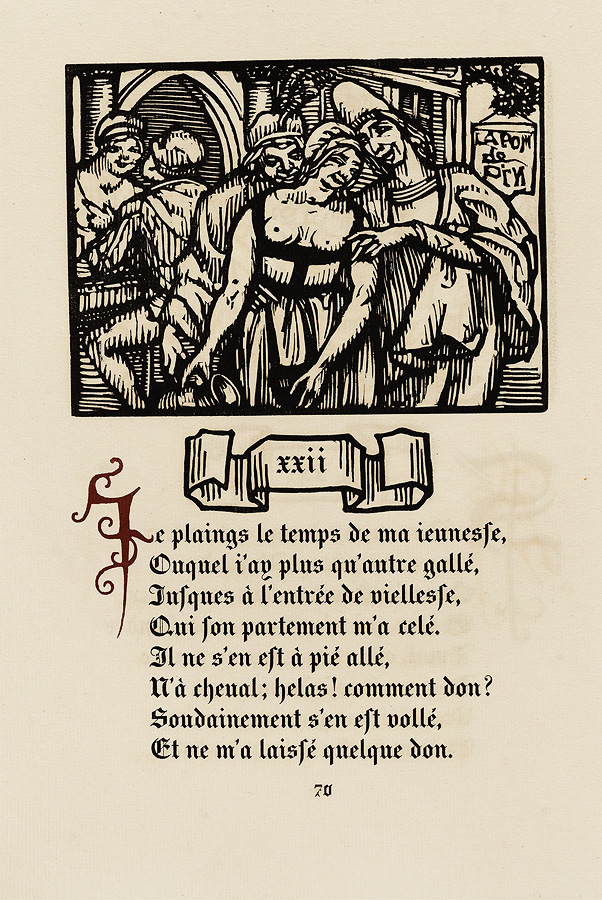 LA POM
de
Pin
xxii
Je plaings le temps de ma ieuneſſe,
Ouquel i'ay plus qu'autre gallé,
Iuſques à l'entrée de vielleſſe,
Qui ſon partement m'a celé.
Il ne s'en eſt à pié allé,
N'à cheual; helas! comment don?
Soudainement s'en eſt vollé,
Et ne m'a laiſſé quelque don.
70